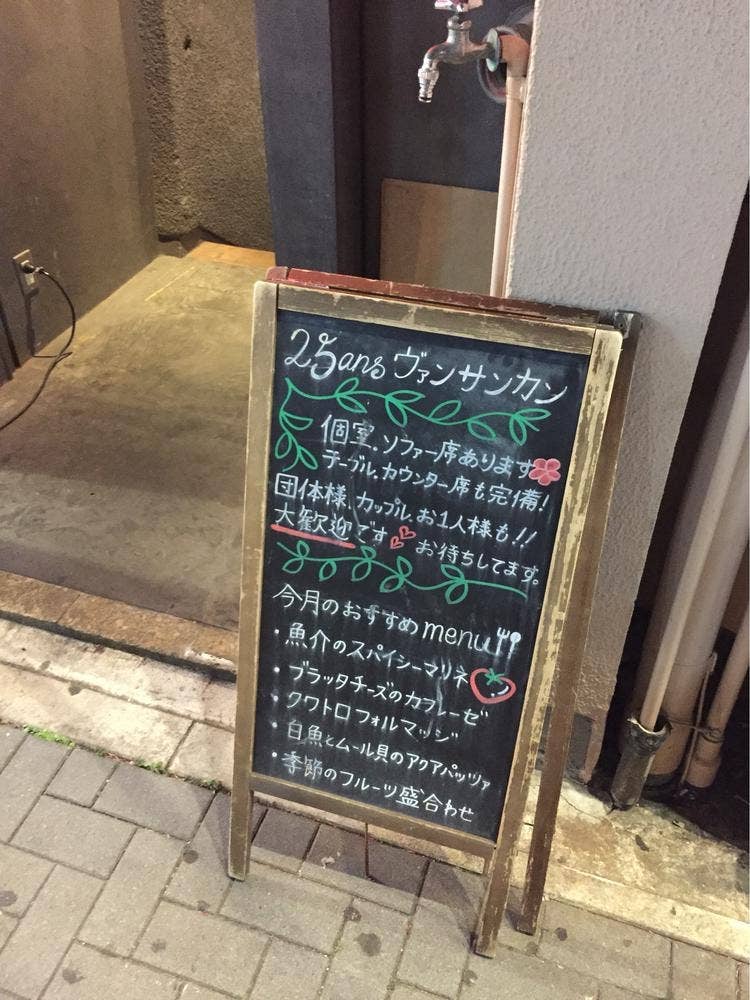 25ans ヴァンサンカン
個室、ソファー席あります
テーブル、カウンター席も完備!
団体様、カップル、お1人様も!!
大歓迎です お待ちしてます。
今月のおすすめ menu
・魚介のスパイシーマリネ
・ブラッタチーズのカプレーゼ
・クワトロフォルマッジ
・白魚とムール貝のアクアパッツァ
・季節のフルーツ盛合わせ